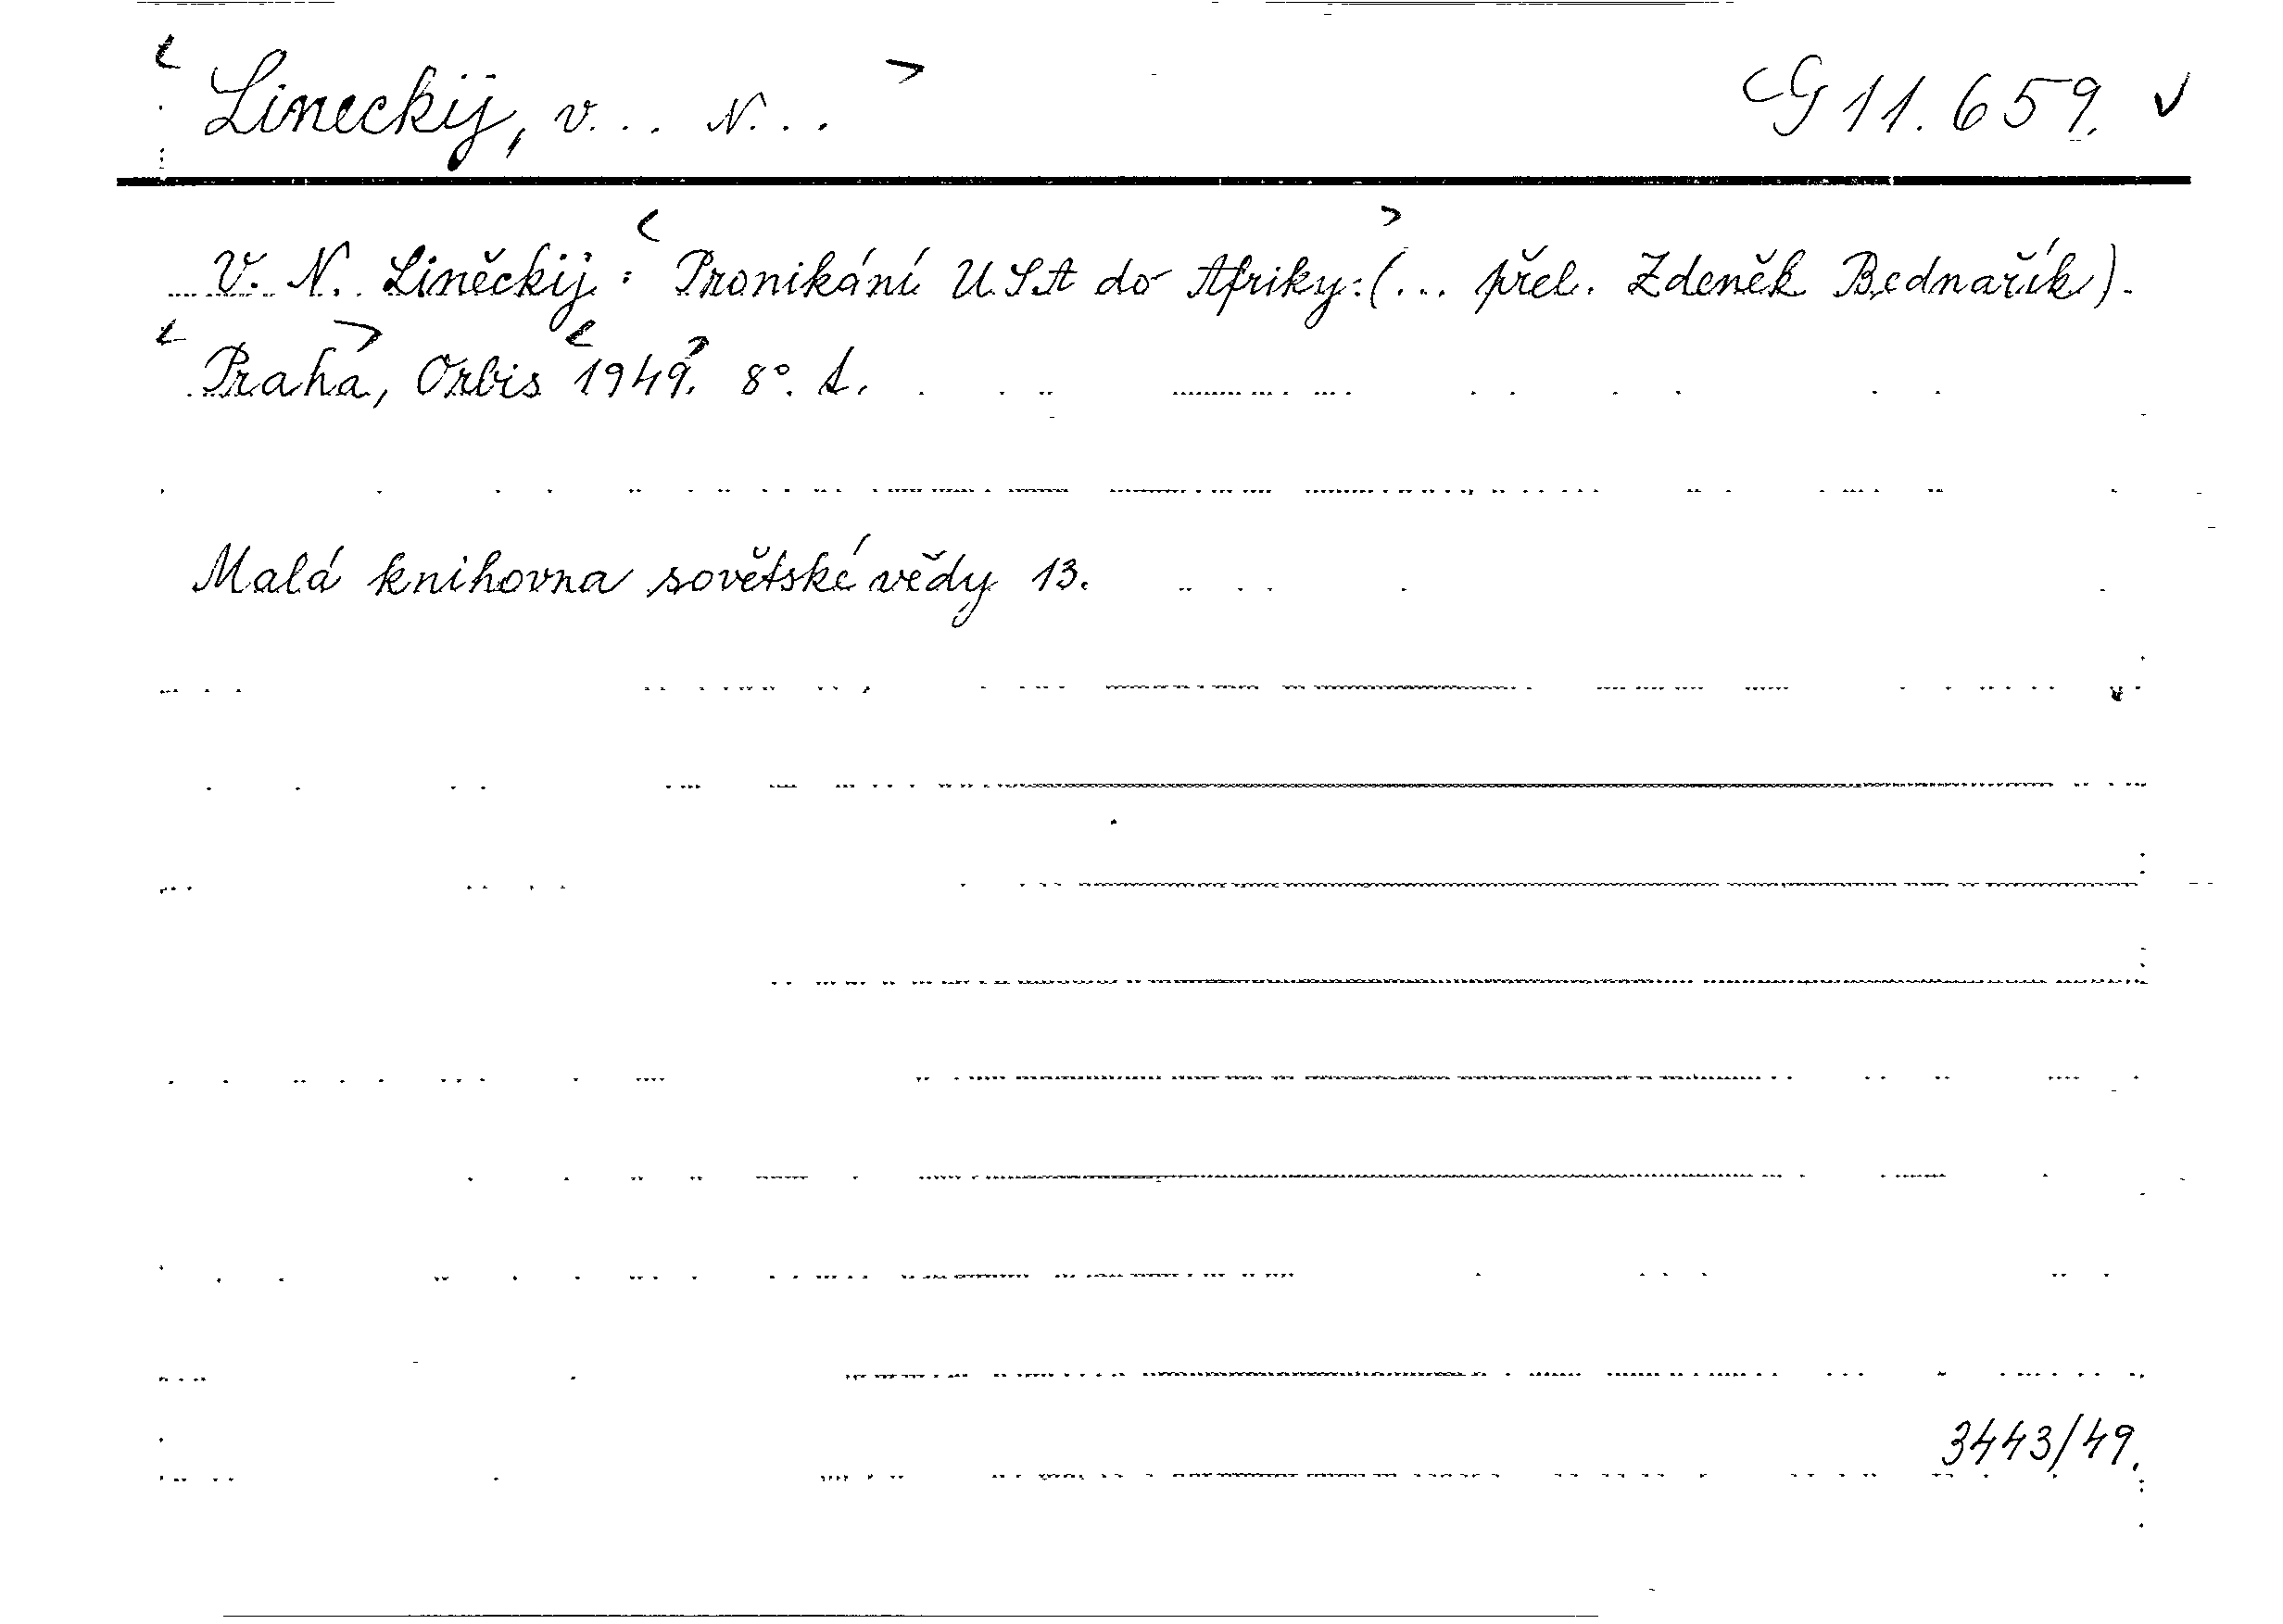 Lineckij, V... N... G 11.659. ✓
V. N. Liněckij: Pronikání USA do Afriky: (... přel. Zdeněk Bednařík).
Praha, Orbis 1949. 8°.
Malá knihovna sovětské vědy 13.
3443/49.